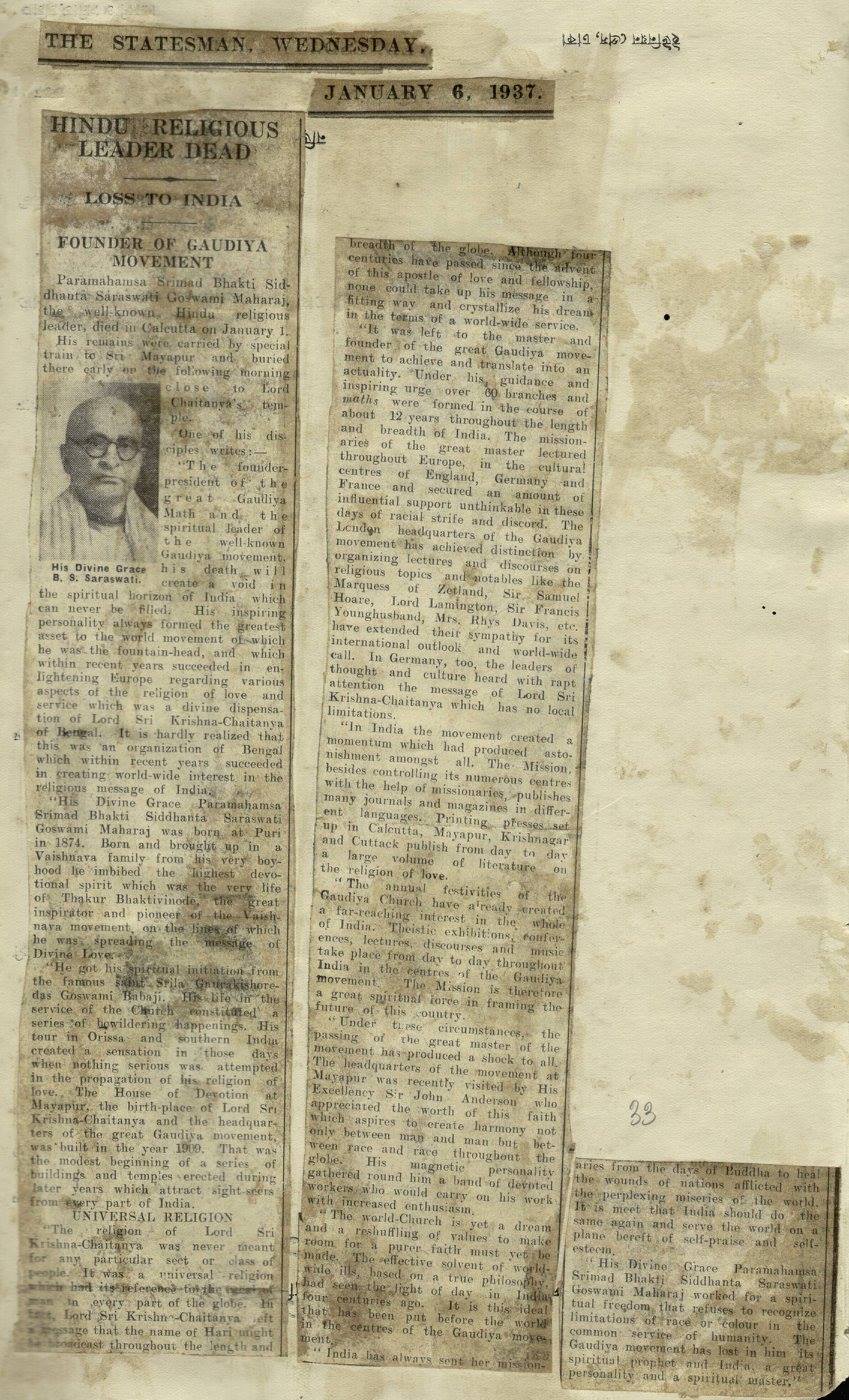 THE STATESMAN, WEDNESDAY,
JANUARY 6, 1937.
HINDU RELIGIOUS
LEADER DEAD
LOSS TO INDIA
FOUNDER OF GAUDIYA
MOVEMENT
Paramahamsa Srimad Bhakti Sid-
dhanta Saraswati Goswami Maharaj,
the well-known Hindu religious
leader, died in Calcutta on January 1.
His remains were carried by special
train to Sri Mayapur and buried
there early on the following morning
close to Lord
Chaitanya's tem-
ple.
One of his dis-
ciples writes:—
"The founder-
president of the
great Gaudiya
Math and the
spiritual leader of
the well-known
Gaudiya movement,
his death will
create a void in
His Divine Grace
B. S. Saraswati.
the spiritual horizon of India which
can never be filled. His inspiring
personality always formed the greatest
asset to the world movement of which
he was the fountain-head, and which
within recent years succeeded in en-
lightening Europe regarding various
aspects of the religion of love and
service which was a divine dispensa-
tion of Lord Sri Krishna-Chaitanya
of Bengal. It is hardly realized that
this was an organization of Bengal
which within recent years succeeded
in creating world-wide interest in the
religious message of India.
"His Divine Grace Paramahamsa
Srimad Bhakti Siddhanta Saraswati
Goswami Maharaj was born at Puri
in 1874. Born and brought up in a
Vaishnava family from his very boy-
hood he imbibed the highest devo-
tional spirit which was the very life
of Thakur Bhaktivinode, the great
inspirator and pioneer of the Vaish-
nava movement, on the lines of which
he was spreading the message of
Divine Love.
"He got his spiritual initiation from
the famous saint Srila Gaurakishore-
das Goswami Babaji. His life in the
service of the Church constituted a
series of bewildering happenings. His
tour in Orissa and southern India
created a sensation in those days
when nothing serious was attempted
in the propagation of his religion of
love. The House of Devotion at
Mayapur, the birth-place of Lord Sri
Krishna-Chaitanya and the headquar-
ters of the great Gaudiya movement,
was built in the year 1909. That was
the modest beginning of a series of
buildings and temples erected during
later years which attract sight-seers
from every part of India.
UNIVERSAL RELIGION
"The religion of Lord Sri
Krishna-Chaitanya was never meant
for any particular sect or class of
people. It was a universal religion
which had its reference to the
man in every part of the globe. In
Lord Sri Krishna-Chaitanya left
a message that the name of Hari might
be broadcast throughout the length and
breadth of the globe. Although four
centuries have passed since the advent
of this apostle of love and fellowship,
none could take up his message in a
fitting way and crystallize his dream
in the terms of a world-wide service.
"It was left to the master and
founder of the great Gaudiya move-
ment to achieve and translate into an
actuality. Under his guidance and
inspiring urge over 60 branches and
maths were formed in the course of
about 12 years throughout the length
and breadth of India. The mission-
aries of the great master lectured
throughout Europe, in the cultural
centres of England, Germany and
France and secured an amount of
influential support unthinkable in these
days of racial strife and discord. The
London headquarters of the Gaudiya
movement has achieved distinction by
organizing lectures and discourses on
religious topics and notables like the
Marquess of Zetland, Sir Samuel
Hoare, Lord Lamington, Sir Francis
Younghusband, Mrs. Rhys Davis, etc.
have extended their sympathy for its
international outlook and world-wide
call. In Germany, too, the leaders of
thought and culture heard with rapt
attention the message of Lord Sri
Krishna-Chaitanya which has no local
limitations.
"In India the movement created a
momentum which had produced asto-
nishment amongst all. The Mission,
besides controlling its numerous centres
with the help of missionaries, publishes
many journals and magazines in differ-
ent languages. Printing presses set
up in Calcutta, Mayapur, Krishnagar
and Cuttack publish from day to day
a large volume of literature on
the religion of love.
"The annual festivities of the
Gaudiya Church have already created
a far-reaching interest in the whole
of India. Theistic exhibitions, confer-
ences, lectures, discourses and music
take place from day to day throughout
India in the centres of the Gaudiya
movement. The Mission is therefore
a great spiritual force in framing the
future of this country.
"Under these circumstances, the
passing of the great master of the
movement has produced a shock to all.
The headquarters of the movement at
Mayapur was recently visited by His
Excellency Sir John Anderson who
appreciated the worth of this faith
which aspires to create harmony not
only between man and man but bet-
ween race and race throughout the
globe. His magnetic personality
gathered round him a band of devoted
workers who would carry on his work
with increased enthusiasm.
"The world-Church is yet a dream
and a reshuffling of values to make
room for a purer faith must yet be
made. The effective solvent of world-
wide ills, based on a true philosophy,
had seen the light of day in India
four centuries ago. It is this ideal
that has been put before the world
in the centres of the Gaudiya move-
ment.
"India has always sent her mission-
33
aries from the days of Buddha to heal
the wounds of nations afflicted with
the perplexing miseries of the world.
It is meet that India should do the
same again and serve the world on a
plane bereft of self-praise and self-
esteem.
"His Divine Grace Paramahamsa
Srimad Bhakti Siddhanta Saraswati
Goswami Maharaj worked for a spiri-
tual freedom that refuses to recognize
limitations of race or colour in the
common service of humanity. The
Gaudiya movement has lost in him its
spiritual prophet and India, a great
personality and a spiritual master."